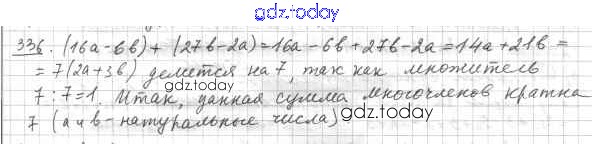 gdz.today
336. (16a-6b)+(27b-2a)=16a-6b+27b-2a=14a+21b=
=7(2a+3b) делится на 7, так как множитель
gdz.today
7:7=1. Итак, данная сумма многочленов кратна
7 (a и b - натуральные числа)
gdz.today